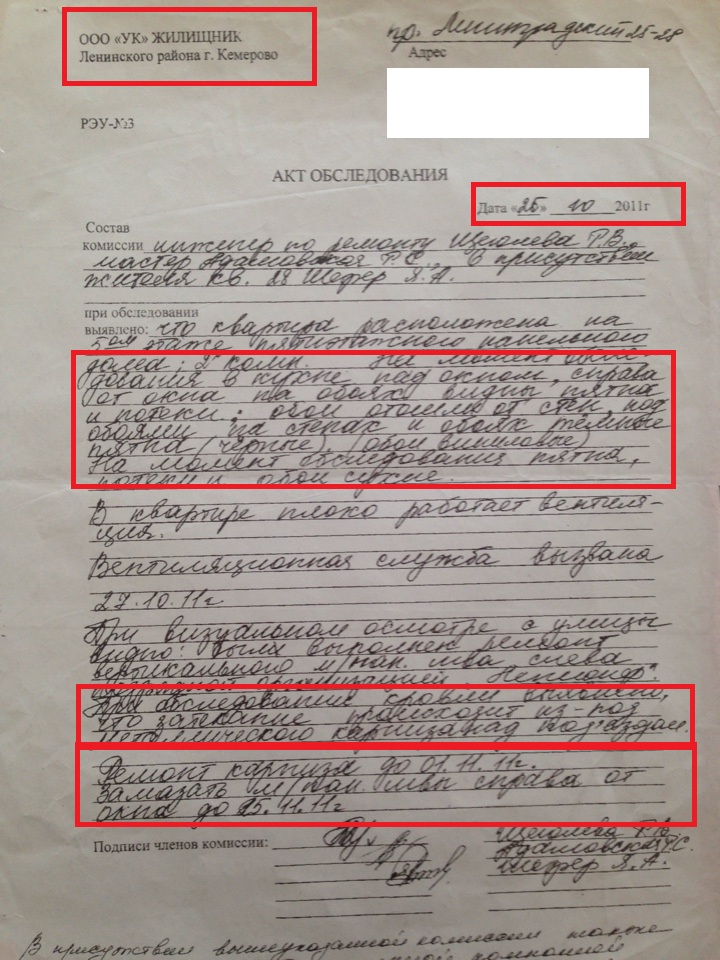 ООО «УК» ЖИЛИЩНИК
Ленинского района г. Кемерово
пр. Ленинградский 25-28
Адрес
РЭУ-№3
АКТ ОБСЛЕДОВАНИЯ
Дата «25» 10 2011г
Состав
комиссии инженер по ремонту Щеголева Г.В.,
мастер Адамовская Г.С., в присутствии
жителя кв. 28 Шефер Я.А.
при обследовании
выявлено: что квартира расположена на
5ом этаже пятиэтажного панельного
дома; 2х комн. На момент обсле-
дования в кухне над окном, справа
от окна на обоях видны пятна
и потеки; обои отошли от стен, под
обоями на стенах и обоях темные
пятна (черные) (обои виниловые)
На момент обследования пятна,
потеки и обои сухие.
В квартире плохо работает вентиля-
ция.
Вентиляционная служба вызвана
27.10.11г.
При визуальном осмотре с улицы
видно: был выполнен ремонт
вертикального м/пан. шва слева
организацией
При обследовании кровли выявлен,
что затекание происходит из-под
металлического карниза над подъездом.
Ремонт карниза до 01.11.11г.
Замазать м/пан. швы справа от
окна до 25.11.11г
Подписи членов комиссии:
Щеголева Г.В.
Адамовская Г.С.
Шефер Я.А.
В присутствии вышеуказанной комиссии также